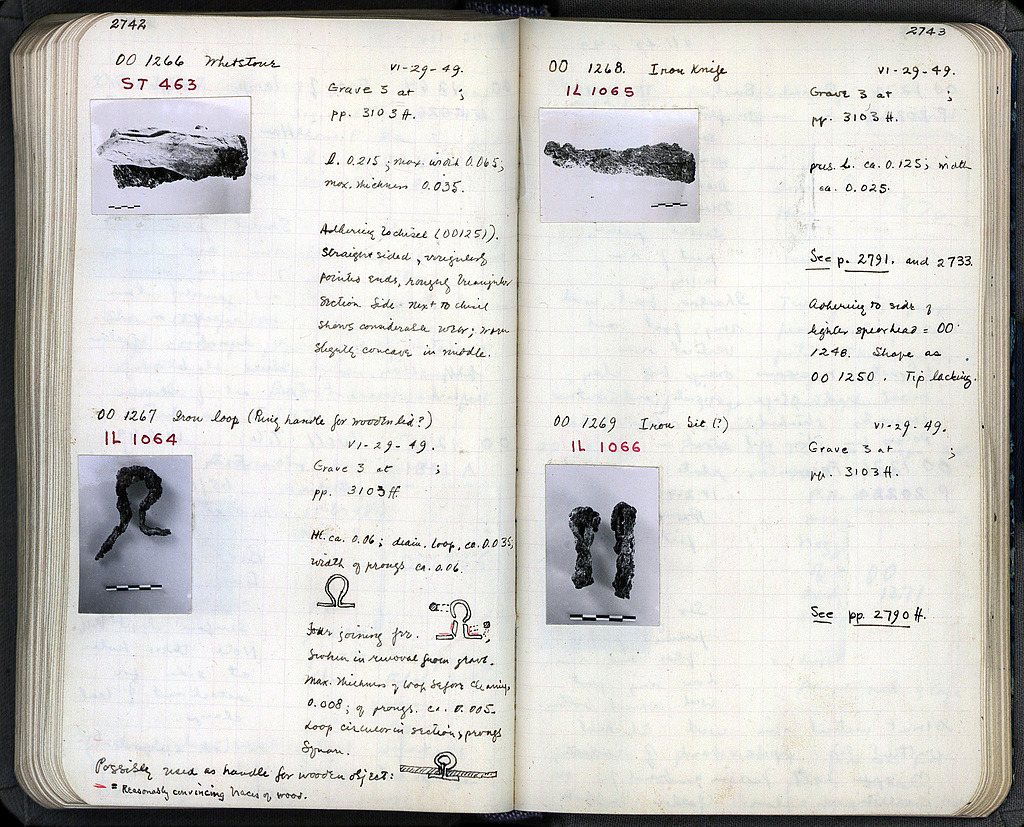 2742
OO 1266 Whetstone
VI-29-49.
ST 463
Grave 3 at ;
pp. 3103 ff.
l. 0.215; max. width 0.065;
max. thickness 0.035.
Adhering to chisel (OO1251).
Straight sided, irregularly
pointed ends, roughly triangular
section. Side next to chisel
shows considerable wear; worn
slightly concave in middle.
OO 1267 Iron loop (Ring handle for wooden lid?)
IL 1064
VI-29-49.
Grave 3 at ;
pp. 3103 ff
Ht. ca. 0.06; diam. loop, ca. 0.035,
width of prongs ca. 0.06.
Four joining frr.
Broken in removal from grave.
Max. thickness of loop before cleaning,
0.008; of prongs. ca. 0.005.
Loop circular in section; prongs
square.
Possibly used as handle for wooden object:
= Reasonably convincing traces of wood.
2743
OO 1268. Iron Knife
VI-29-49.
IL 1065
Grave 3 at ;
pp. 3103 ff.
pres. l. ca. 0.125; width
ca. 0.025.
See p. 2791. and 2733.
Adhering to side of
lighter spearhead = OO
1248. Shape as
OO 1250. Tip lacking.
OO 1269 Iron bit (?)
VI-29-49.
IL 1066
Grave 3 at ;
pp. 3103 ff.
See pp. 2790 ff.